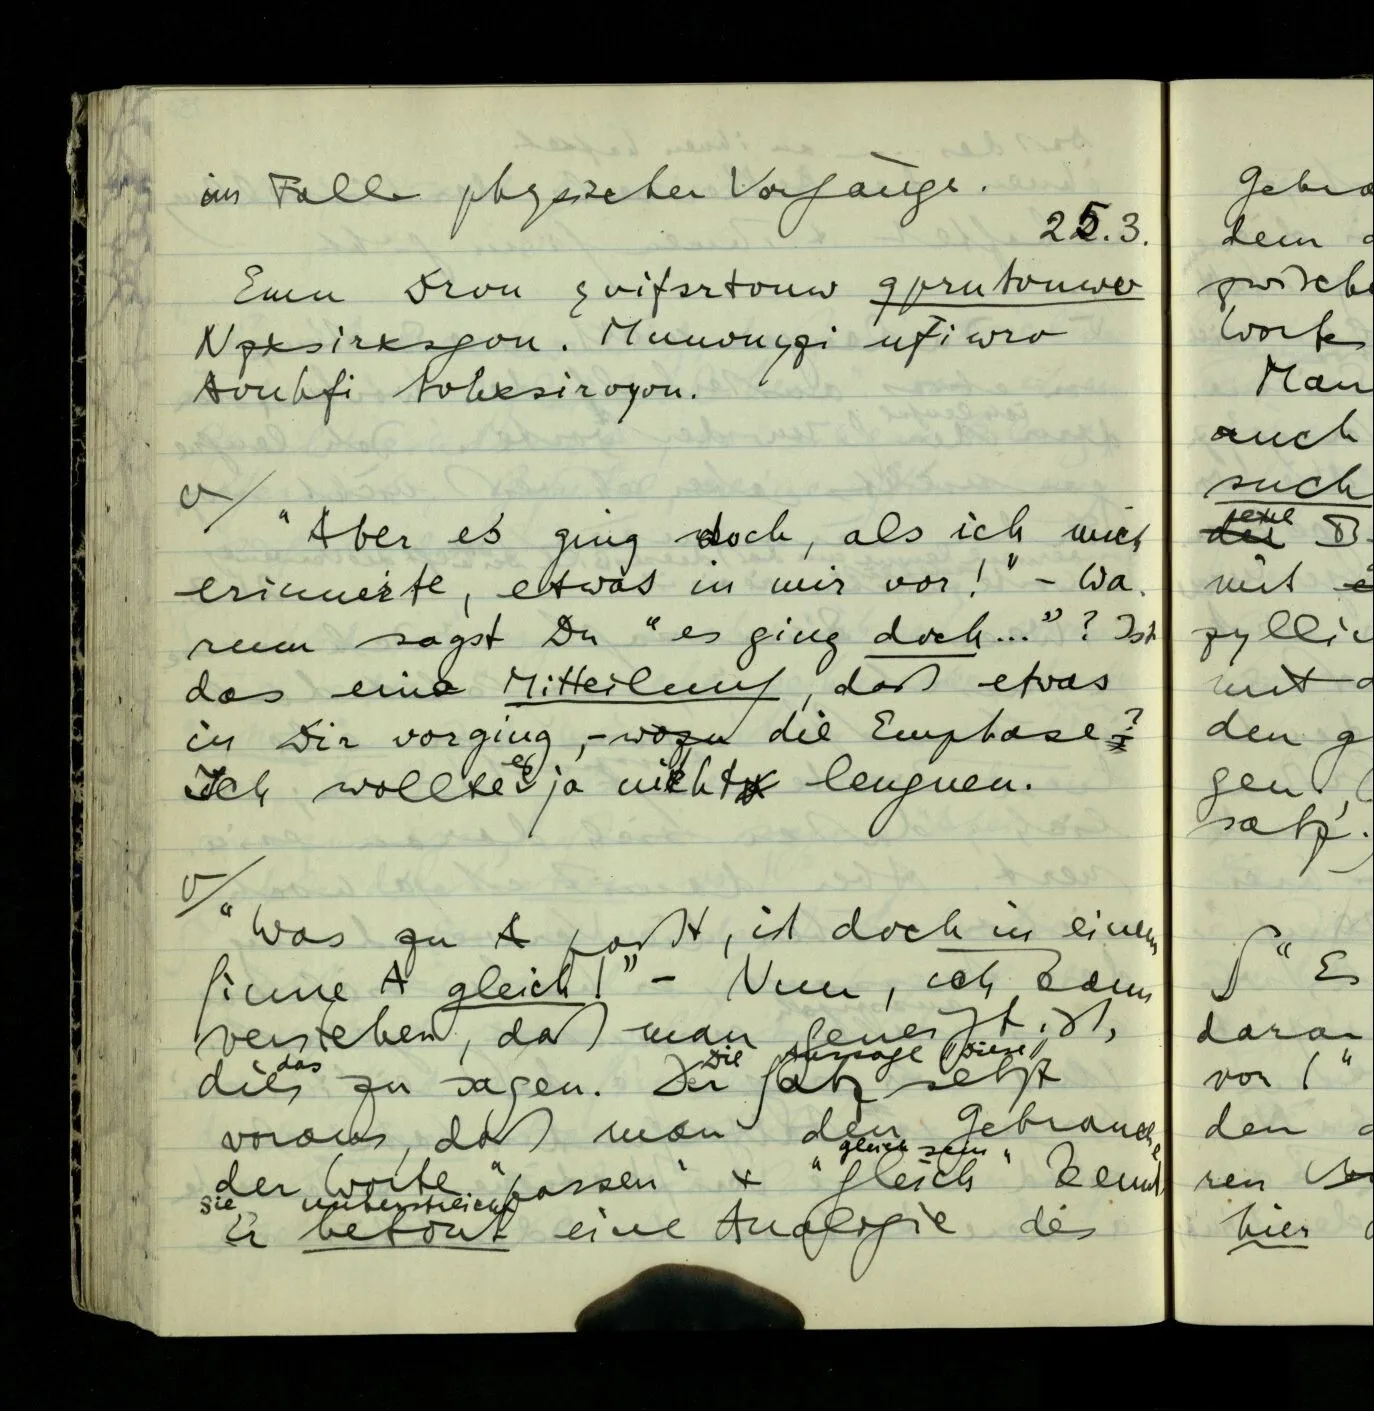 im Falle physischer Vorgänge.
25.3.
Emu Drou
"Aber es ging doch, als ich mich
erinnerte, etwas in mir vor!" – Wa-
rum sagst Du "es ging doch..."? Ist
das eine Mitteilung, daß etwas
in Dir vorging, – wozu die Emphase?
Ich wollte es ja nicht leugnen.
"Was zu A paßt, ist doch in einem
Sinne A gleich!" – Nun, ich kann
verstehen, daß man geneigt ist,
das
dies zu sagen. Der Satz setzt
Die Aussage
voraus, daß man den Gebrauch
der Worte "passen" & "gleich" kennt
gleich sein
Sie unterstreicht
Er betont eine Analogie des
dem
zwische
Worte
Man
auch
such
jene
die B
mit
zyllin
mit
den g
gen.
satz.
∫ "Es
daran
vor!"
den
ren
hier